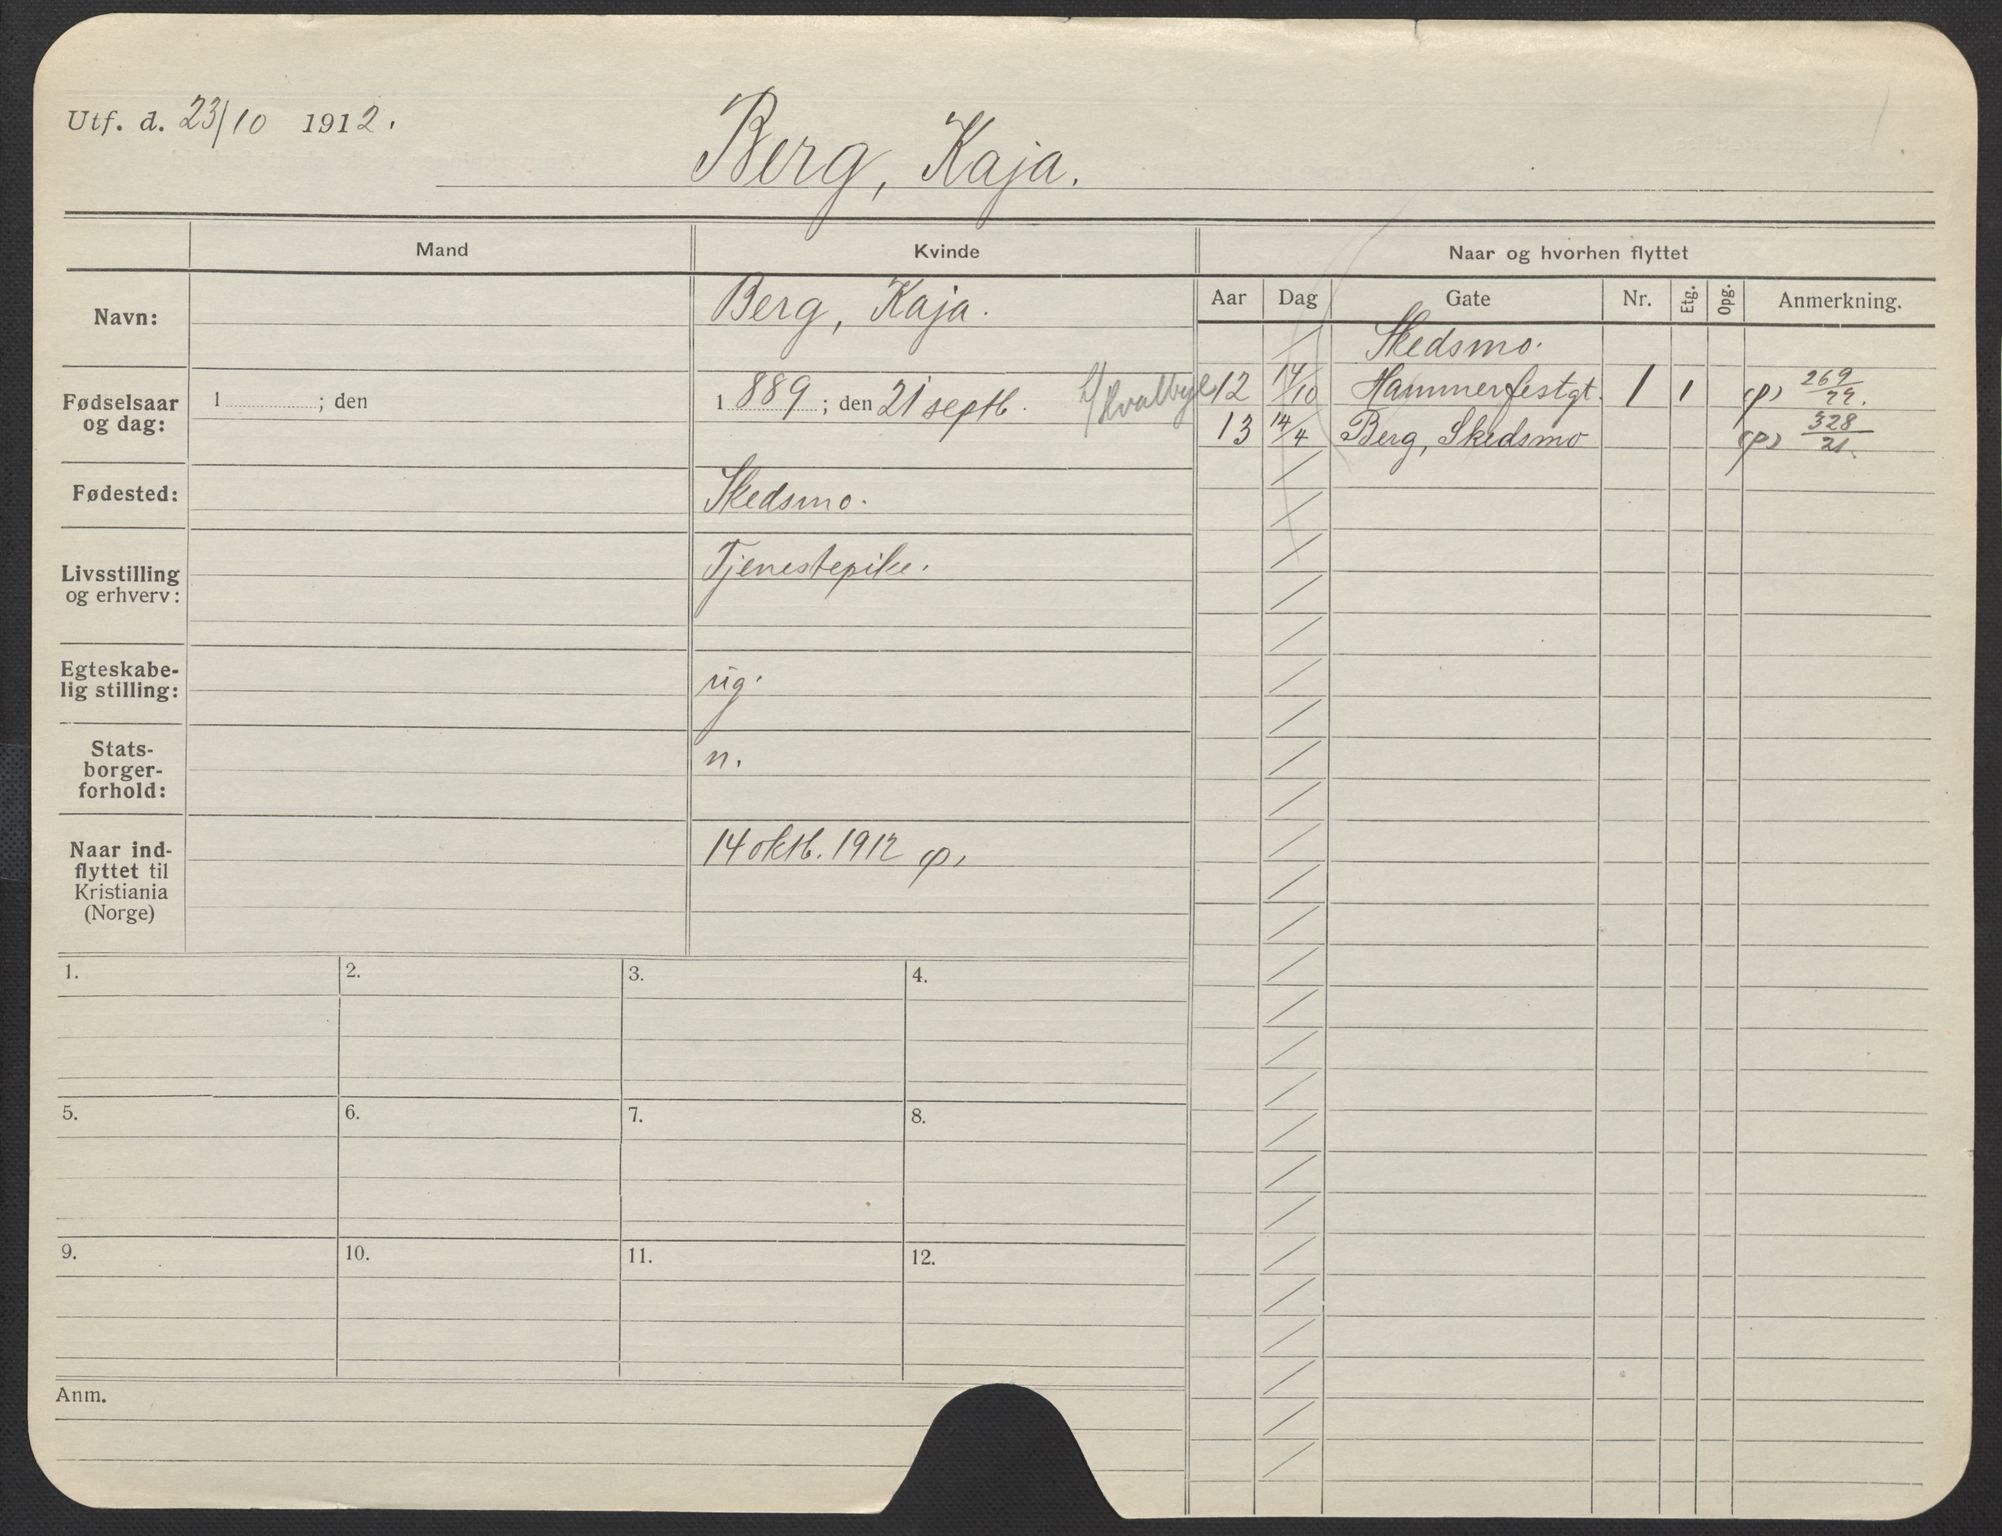 Utf. d. 23/10 1912.
Berg, Kaja.
Mand
Kvinde
Naar og hvorhen flyttet
Navn:
Berg, Kaja.
Aar Dag Gate Nr. Etg. Opg. Anmerkning.
Skedsmo.
12 14/10 Hammerfestgt. 1 1 (p) 269/22.
13 14/4 Berg, Skedsmo (p) 328/21.
Fødselsaar
og dag:
1 ; den
1 889 ; den 21 septb.
Fødested:
Skedsmo.
Livsstilling
og erhverv:
Tjenestepike.
Egteskabe-
lig stilling:
ug.
Stats-
borger-
forhold:
n.
Naar ind-
flyttet til
Kristiania
(Norge)
14 oktb. 1912 p.
1. 2. 3. 4.
5. 6. 7. 8.
9. 10. 11. 12.
Anm.